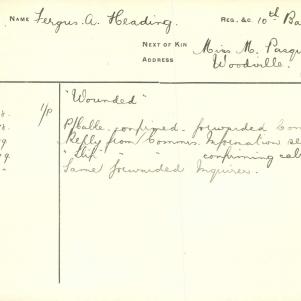 NAME Fergus. A. Heading. REG. &C. 10th Ba
NEXT OF KIN Miss M. Pasqu
ADDRESS Woodville.
"Wounded"
8. 1/P P/Cable confirmed. forwarded Com
8.
9. Reply from Commis. Information se
9. Slip " " confirming cabl
" Same forwarded Inquirer.